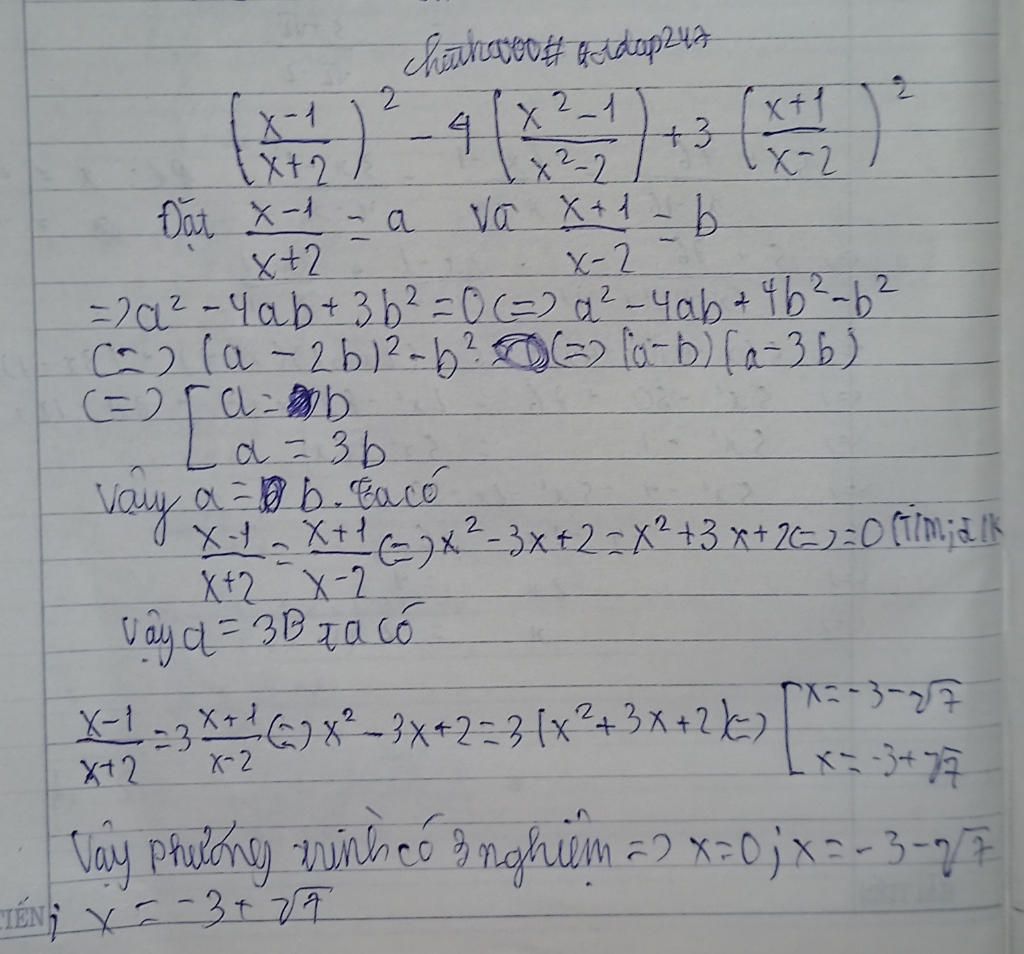 (x-1/x+2)² - 4(x²-1/x²-2) + 3(x+1/x-2)²
Đặt x-1/x+2 = a và x+1/x-2 = b
=> a² - 4ab + 3b² = 0 <=> a² - 4ab + 4b² - b²
<=> (a - 2b)² - b² <=> (a-b)(a-3b)
<=> [ a = b
a = 3b
Vậy a = b. ta có
x-1/x+2 = x+1/x-2 <=> x² - 3x + 2 = x² + 3x + 2 <=> = 0 (T/m;đ/k
Vậy a = 3B ta có
x-1/x+2 = 3 x+1/x-2 <=> x² - 3x + 2 = 3(x² + 3x + 2) <=> [ x = -3 - √7
x = -3 + √7
Vậy phương trình có 3 nghiệm => x = 0; x = -3 - √7
TIẾN ; x = -3 + √7